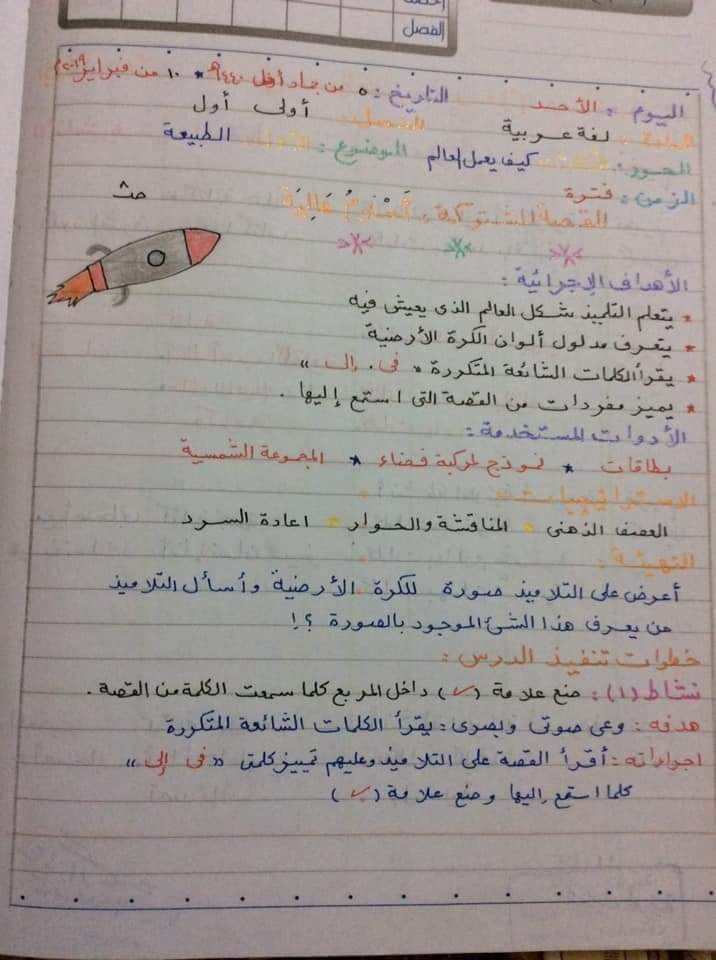 الفصل
اليوم : الأحد التاريخ : ٥ من جماد أول ١٤٤٠هـ * ١٠ من فبراير ٢٠١٩م
المادة : لغة عربية الفصل : أولى أول
المحور : الثالث كيف يعمل العالم الموضوع : الطبيعة
الزمن : فترة
القصة المشتركة : أحلام عالية
الأهداف الإجرائية :
* يتعلم التلميذ شكل العالم الذى يعيش فيه
* يتعرف مدلول ألوان الكرة الأرضية
* يقرأ الكلمات الشائعة المتكررة " فى . إلى "
* يميز مفردات من القصة التى استمع إليها .
الأدوات المستخدمة :
بطاقات * نموذج لمركبة فضاء * المجموعة الشمسية
الاستراتيجيات
العصف الذهنى * المناقشة والحوار * اعادة السرد
التهيئة :
أعرض على التلاميذ صورة للكرة الأرضية وأسأل التلاميذ
من يعرف هذا الشئ الموجود بالصورة ؟!
خطوات تنفيذ الدرس :
نشاط (١) : ضع علامة (✓) داخل المربع كلما سمعت الكلمة من القصة .
هدفه : وعى صوتى وبصرى : يقرأ الكلمات الشائعة المتكررة
اجراءاته : أقرأ القصة على التلاميذ وعليهم تمييز كلمتى " فى إلى "
كلما استمع إليها وضع علامة (✓)